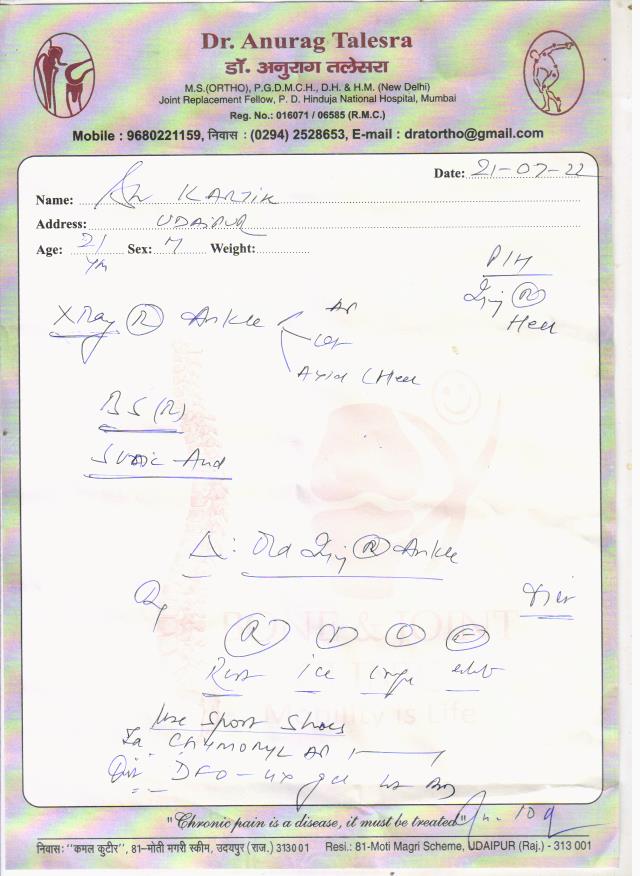 Dr. Anurag Talesra
डॉ. अनुराग तलेसरा
M.S.(ORTHO), P.G.D.M.C.H., D.H. & H.M. (New Delhi)
Joint Replacement Fellow, P. D. Hinduja National Hospital, Mumbai
Reg. No.: 016071 / 06585 (R.M.C.)
Mobile : 9680221159, निवास : (0294) 2528653, E-mail : dratortho@gmail.com
Date: 21-07-22
Name: KARTIK
Address: UDAIPUR
Age: 21 Sex: M Weight:
P/H
Inj (R)
Heel
X Ray (R) Ankle
AP
Axial (Heel
BS (R)
Δ: Old Inj (R) Ankle
Rx
Diet
(R) (I) (C) (E)
Rest ice
Use Sport Shoes
CHYMORYL AP
gel
Mobility is Life
"Chronic pain is a disease, it must be treated"
निवास: "कमल कुटीर", 81-मोती मगरी स्कीम, उदयपुर (राज.) 313001 Resi.: 81-Moti Magri Scheme, UDAIPUR (Raj.) - 313 001